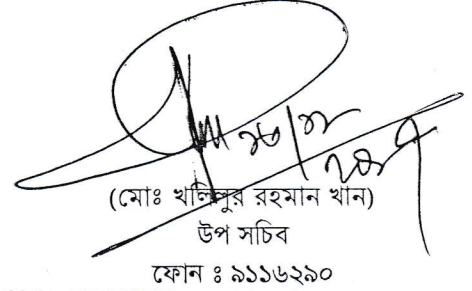 (মোঃ খলিলুর রহমান খান)
উপ সচিব
ফোন ঃ ৯১১৬২৯০